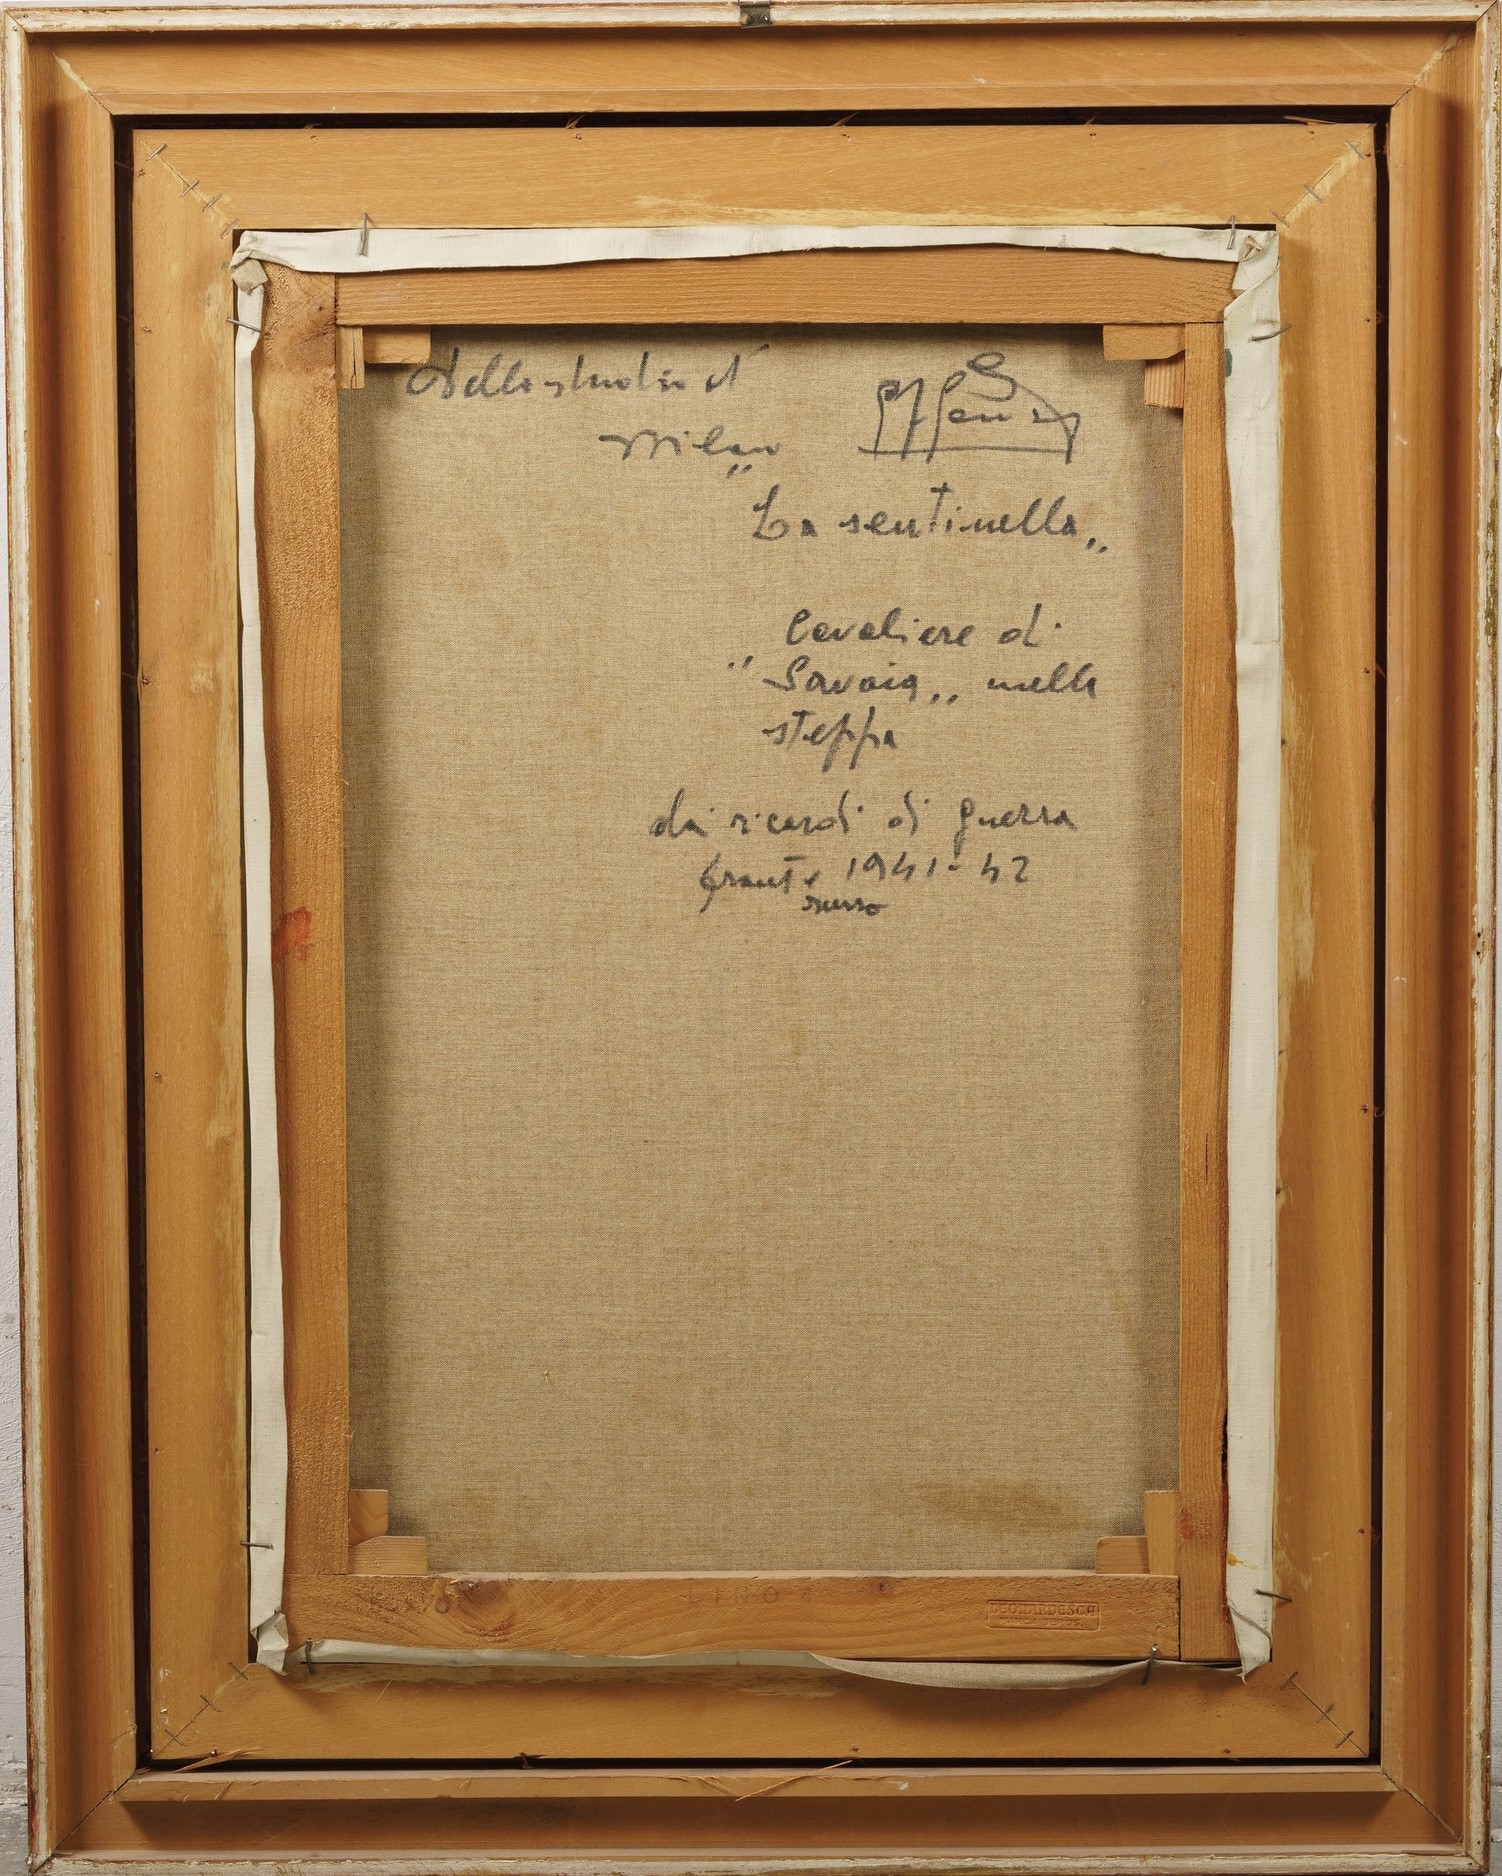 Dello studio di
Milano
"La sentinella„
Cavaliere di
"Savoia„ nella
steppa
dai ricordi di guerra
fronte 1941-42
russo
LINO